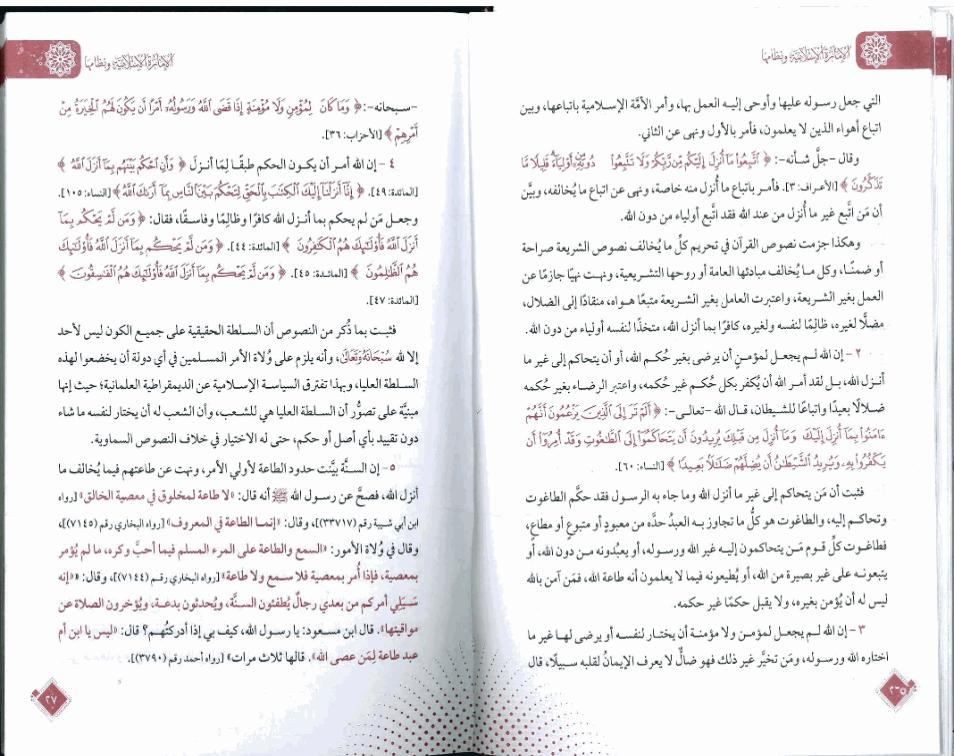 الإمارة الإسلامية ونظامها
التي جعل رسوله عليها وأوحى إليه العمل بها، وأمر الأمَّة الإسلامية باتباعها، وبين
اتباع أهواء الذين لا يعلمون، فأمر بالأول ونهى عن الثاني.
وقال -جلَّ شأنه-: ﴿ ٱتَّبِعُوا۟ مَآ أُنزِلَ إِلَيْكُم مِّن رَّبِّكُمْ وَلَا تَتَّبِعُوا۟ مِن دُونِهِۦٓ أَوْلِيَآءَ ۗ قَلِيلًا مَّا
تَذَكَّرُونَ ﴾ [الأعراف: ٣]. فأمر باتباع ما أُنزل منه خاصة، ونهى عن اتباع ما يُخالفه، وبيَّن
أن مَن اتَّبع غير ما أُنزل من عند الله فقد اتَّبع أولياء من دون الله.
وهكذا جزمت نصوص القرآن في تحريم كلِّ ما يُخالف نصوص الشريعة صراحة
أو ضمنًا، وكل ما يُخالف مبادئها العامة أو روحها التشريعية، ونهت نهيًا جازمًا عن
العمل بغير الشريعة، واعتبرت العامل بغير الشريعة متبعًا هواه، منقادًا إلى الضلال،
مضلًّا لغيره، ظالِمًا لنفسه ولغيره، كافرًا بما أنزل الله، متخذًا لنفسه أولياء من دون الله.
٢ - إن الله لم يجعل لمؤمن أن يرضى بغير حُكم الله، أو أن يتحاكم إلى غير ما
أنزل الله، بل لقد أمر الله أن يُكفر بكل حُكم غير حُكمه، واعتبر الرضاء بغير حُكمه
ضلالًا بعيدًا واتباعًا للشيطان، قال الله -تعالى-: ﴿ أَلَمْ تَرَ إِلَى ٱلَّذِينَ يَزْعُمُونَ أَنَّهُمْ
ءَامَنُوا۟ بِمَآ أُنزِلَ إِلَيْكَ وَمَآ أُنزِلَ مِن قَبْلِكَ يُرِيدُونَ أَن يَتَحَاكَمُوٓا۟ إِلَى ٱلطَّـٰغُوتِ وَقَدْ أُمِرُوٓا۟ أَن
يَكْفُرُوا۟ بِهِۦ وَيُرِيدُ ٱلشَّيْطَـٰنُ أَن يُضِلَّهُمْ ضَلَـٰلًۢا بَعِيدًا ﴾ [النساء: ٦٠].
فثبت أن مَن يتحاكم إلى غير ما أنزل الله وما جاء به الرسول فقد حكَّم الطاغوت
وتحاكم إليه، والطاغوت هو كلُّ ما تجاوز به العبدُ حدَّه من معبودٍ أو متبوعٍ أو مطاعٍ،
فطاغوت كلِّ قوم مَن يتحاكمون إليه غير الله ورسوله، أو يعبُدونه من دون الله، أو
يتبعونه على غير بصيرة من الله، أو يُطيعونه فيما لا يعلمون أنه طاعة الله، فمَن آمن بالله
ليس له أن يُؤمن بغيره، ولا يقبل حكمًا غير حكمه.
٣ - إن الله لم يجعل لمؤمن ولا مؤمنة أن يختار لنفسه أو يرضى لها غير ما
اختاره الله ورسوله، ومَن تخيَّر غير ذلك فهو ضالٌّ لا يعرف الإيمانُ لقلبه سبيلًا، قال
الإمارة الإسلامية ونظامها
-سبحانه-: ﴿ وَمَا كَانَ لِمُؤْمِنٍ وَلَا مُؤْمِنَةٍ إِذَا قَضَى ٱللَّهُ وَرَسُولُهُۥٓ أَمْرًا أَن يَكُونَ لَهُمُ ٱلْخِيَرَةُ مِنْ
أَمْرِهِمْ ﴾ [الأحزاب: ٣٦].
٤ - إن الله أمر أن يكون الحكم طبقًا لِمَا أنزل ﴿ وَأَنِ ٱحْكُم بَيْنَهُم بِمَآ أَنزَلَ ٱللَّهُ ﴾
[المائدة: ٤٩]. ﴿ إِنَّآ أَنزَلْنَآ إِلَيْكَ ٱلْكِتَـٰبَ بِٱلْحَقِّ لِتَحْكُمَ بَيْنَ ٱلنَّاسِ بِمَآ أَرَىٰكَ ٱللَّهُ ﴾ [النساء: ١٠٥].
وجعل مَن لم يحكم بما أنزل الله كافرًا وظالِمًا وفاسقًا، فقال: ﴿ وَمَن لَّمْ يَحْكُم بِمَآ
أَنزَلَ ٱللَّهُ فَأُو۟لَـٰٓئِكَ هُمُ ٱلْكَـٰفِرُونَ ﴾ [المائدة: ٤٤]. ﴿ وَمَن لَّمْ يَحْكُم بِمَآ أَنزَلَ ٱللَّهُ فَأُو۟لَـٰٓئِكَ
هُمُ ٱلظَّـٰلِمُونَ ﴾ [المائدة: ٤٥]. ﴿ وَمَن لَّمْ يَحْكُم بِمَآ أَنزَلَ ٱللَّهُ فَأُو۟لَـٰٓئِكَ هُمُ ٱلْفَـٰسِقُونَ ﴾
[المائدة: ٤٧].
فثبت بما ذُكر من النصوص أن السلطة الحقيقية على جميع الكون ليس لأحد
إلا لله سُبْحَانَهُ وَتَعَالَى، وأنه يلزم على وُلاة الأمر المسلمين في أي دولة أن يخضعوا لهذه
السلطة العليا، وبهذا تفترق السياسة الإسلامية عن الديمقراطية العلمانية؛ حيث إنها
مبنيَّة على تصوُّر أن السلطة العليا هي للشعب، وأن الشعب له أن يختار لنفسه ما شاء
دون تقييد بأي أصل أو حكم، حتى له الاختيار في خلاف النصوص السماوية.
٥ - إن السنَّة بيَّنت حدود الطاعة لأولي الأمر، ونهت عن طاعتهم فيما يُخالف ما
أنزل الله، فصحَّ عن رسول الله ﷺ أنه قال: «لا طاعة لمخلوق في معصية الخالق» [رواه
ابن أبي شيبة رقم (٣٣٧١٧)]، وقال: «إنما الطاعة في المعروف» [رواه البخاري رقم (٧١٤٥)]،
وقال في وُلاة الأمور: «السمع والطاعة على المرء المسلم فيما أحبَّ وكره، ما لم يُؤمر
بمعصية، فإذا أُمر بمعصية فلا سمع ولا طاعة» [رواه البخاري رقم (٧١٤٤)]، وقال: «إنه
سَيَلِي أمركم من بعدي رجالٌ يُطفئون السنَّة، ويُحدثون بدعة، ويُؤخرون الصلاة عن
مواقيتها». قال ابن مسعود: يا رسول الله، كيف بي إذا أدركتُهم؟ قال: «ليس يا ابن أم
عبد طاعة لِمَن عصى الله». قالها ثلاث مرات» [رواه أحمد رقم (٣٧٩٠)].
٢٧